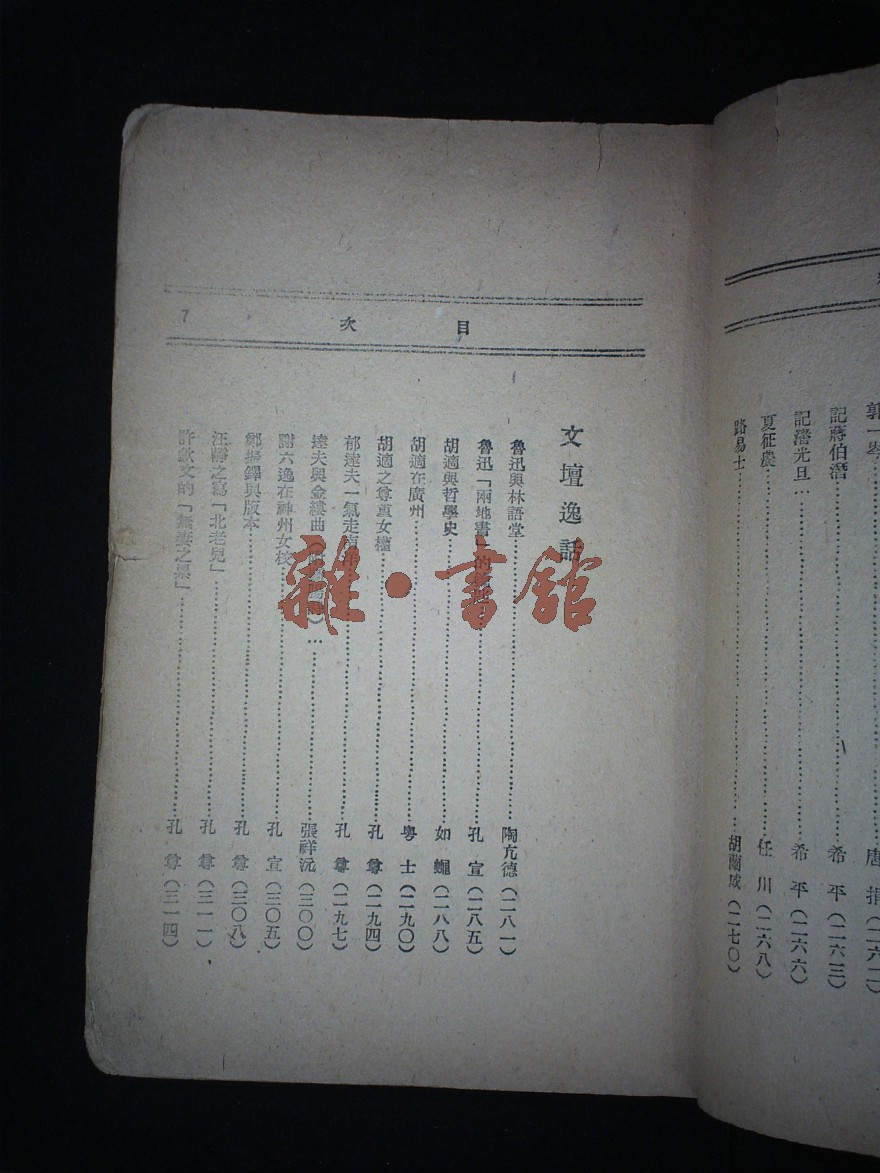 郭一岑……唐捐（二六二）
記蔣伯潛……希平（二六三）
記潘光旦……希平（二六六）
夏征農……任川（二六八）
路易士……胡蘭成（二七〇）
目次
7
文壇逸話
魯迅與林語堂……陶亢德（二八一）
魯迅「兩地書」的……孔宣（二八五）
胡適與哲學史……如（二八八）
胡適在廣州……粵士（二九〇）
胡適之尊重女權……孔尊（二九四）
郁達夫一氣走……孔尊（二九七）
達夫與金縷曲……張祥沅（三〇〇）
謝六逸在神州女校……孔宣（三〇五）
鄭振鐸與版本……孔尊（三〇八）
汪靜之寫「北老兒」……孔尊（三一一）
許欽文的「無妻之累」……孔尊（三一四）
雜·書館